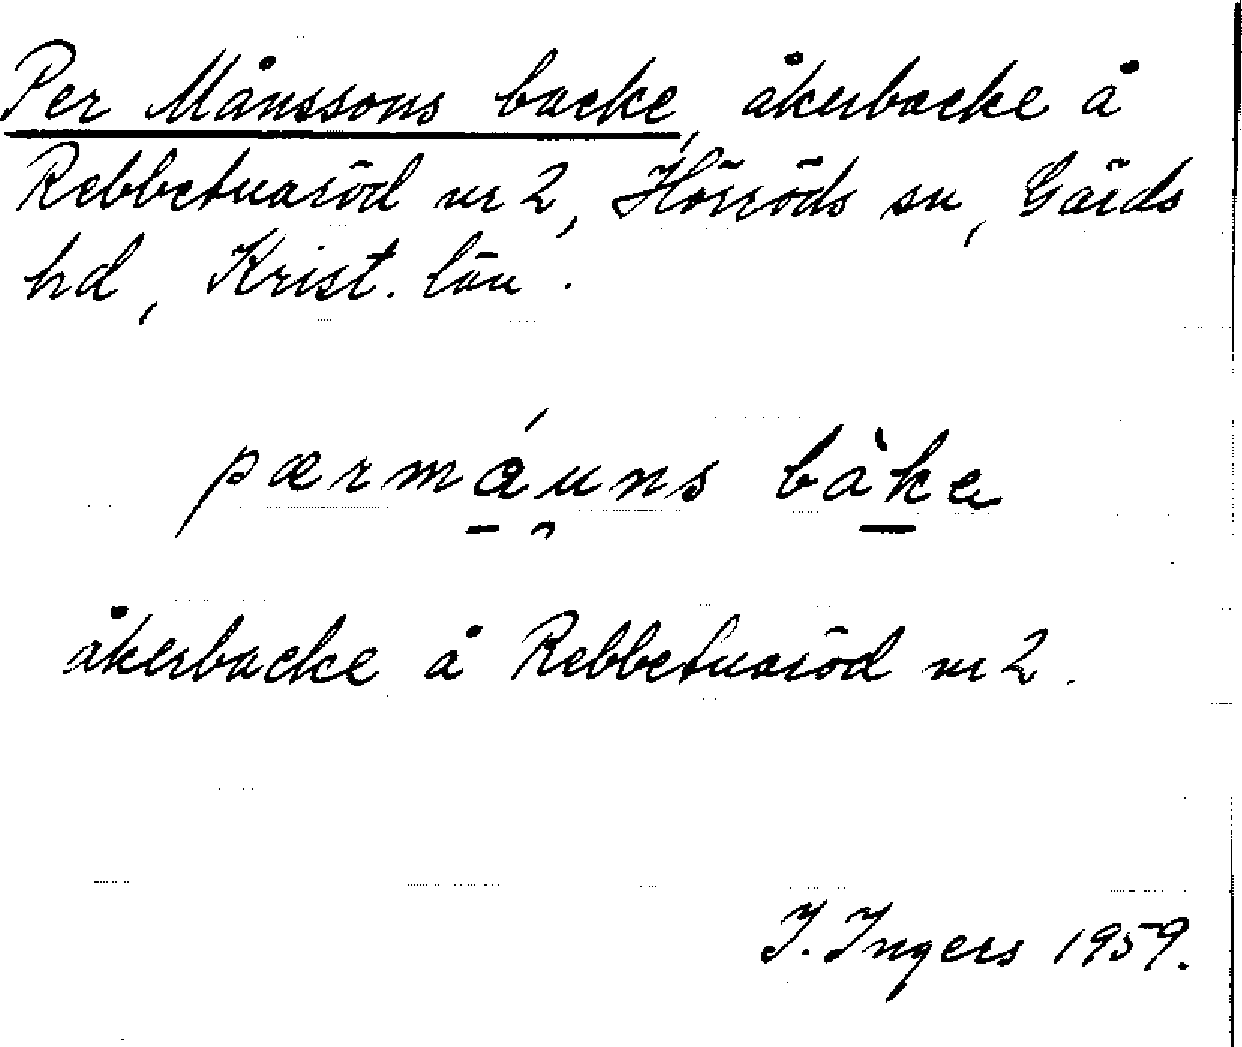 Per Månssons backe, åkerbacke å
Rebbetuaröd nr 2, Hörröds sn, Gärds
hd, Krist. län.
pærmáuns bàkɐ
åkerbacke å Rebbetuaröd nr 2.
I. Ingers 1959.